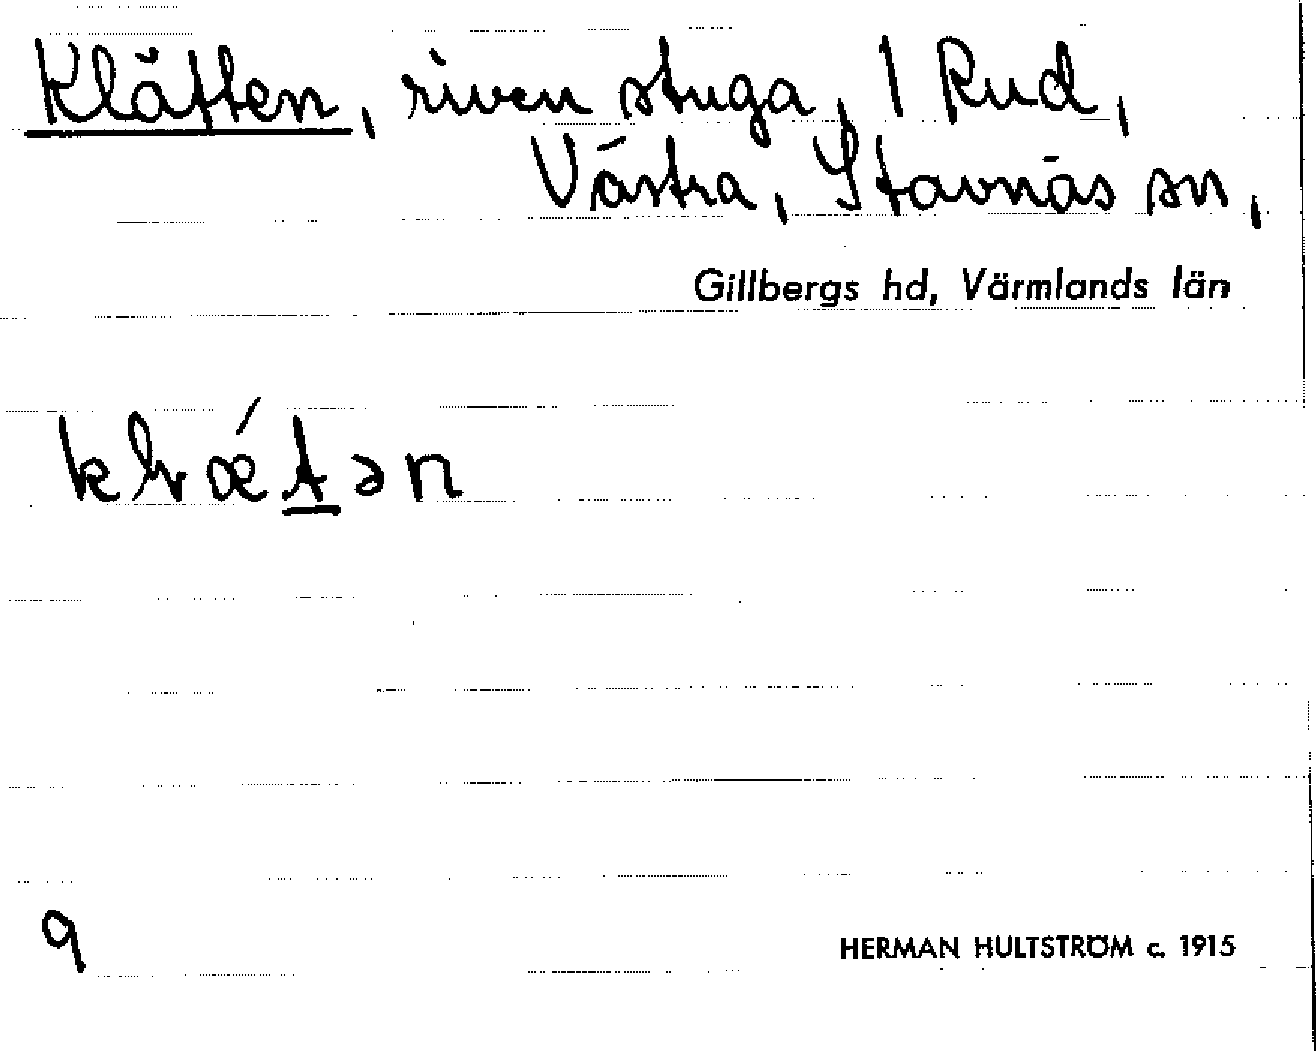 Kläften, riven stuga, 1 Rud,
Västra, Stavnäs sn,
Gillbergs hd, Värmlands län
9
HERMAN HULTSTRÖM c. 1915